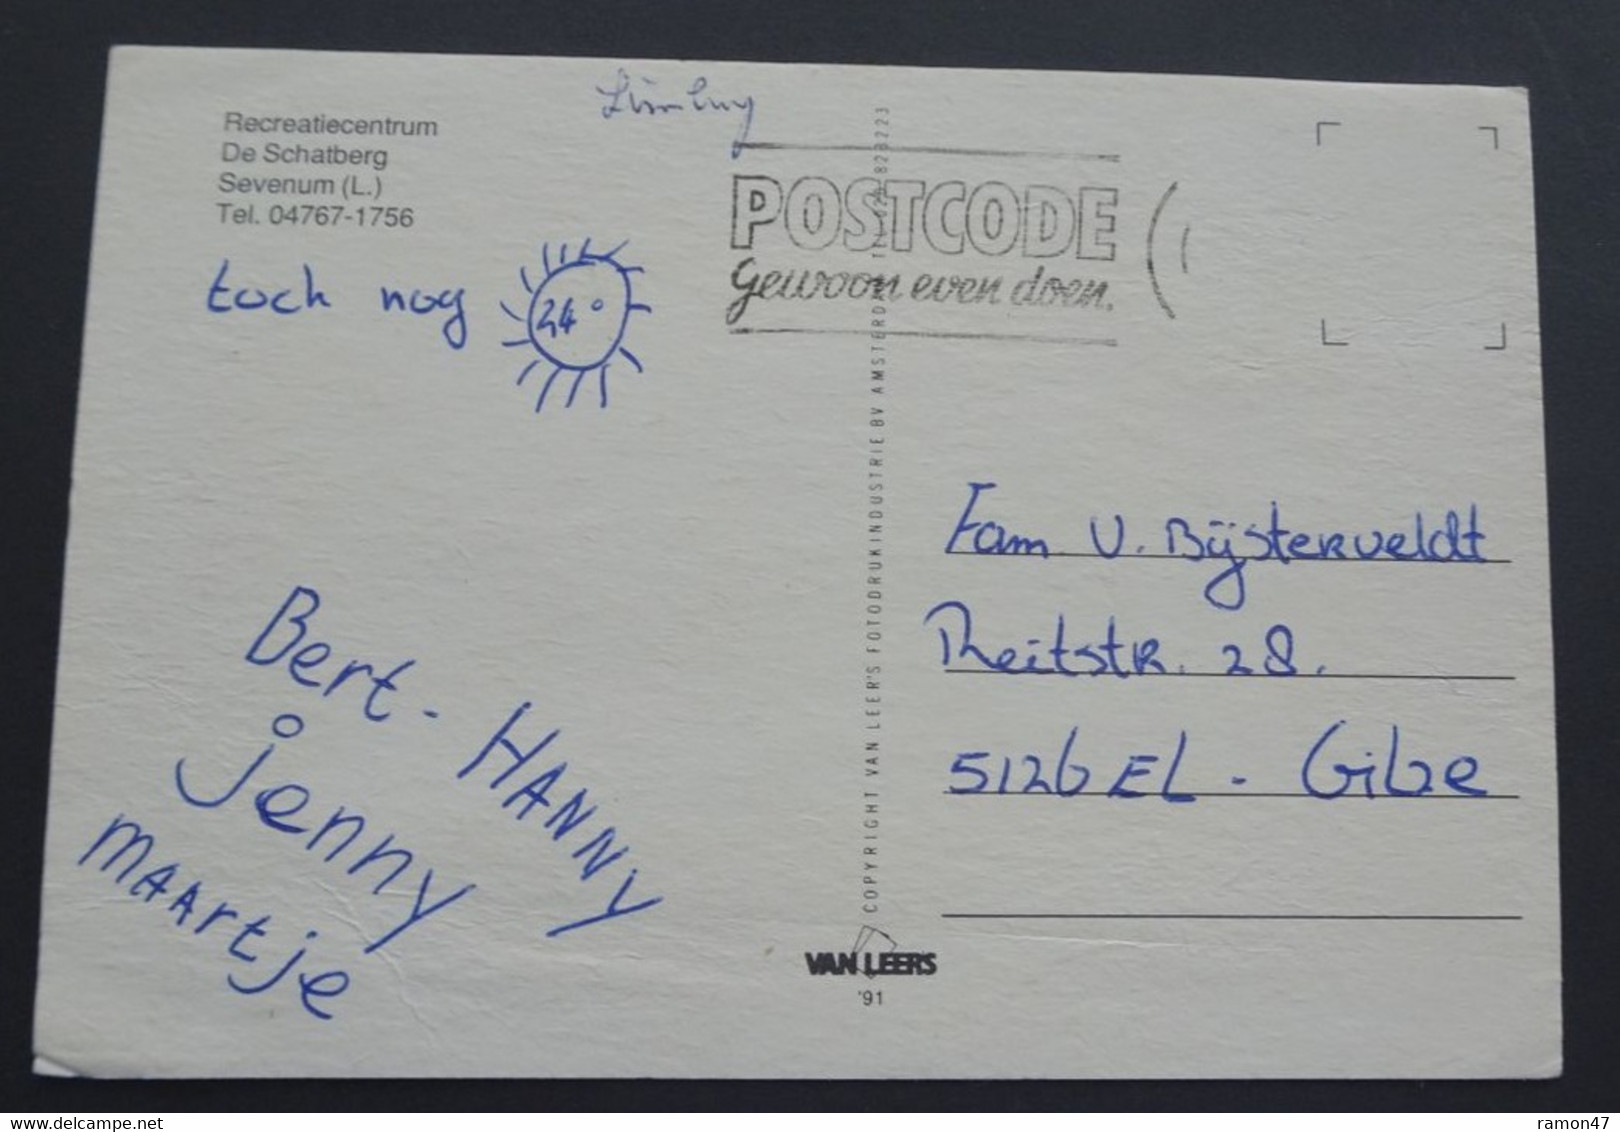 Limburg
Recreatiecentrum
De Schatberg
Sevenum (L.)
Tel. 04767-1756
toch nog 24°
Bert - HANNY
jenny
mAArtje
POSTCODE
Gewoon even doen.
COPYRIGHT VAN LEER'S FOTODRUKINDUSTRIE BV AMSTERDAM
VAN LEER'S
'91
Fam. V. Bijsterveldt
Reitstr. 28.
5126 EL - Gilze
ramon47